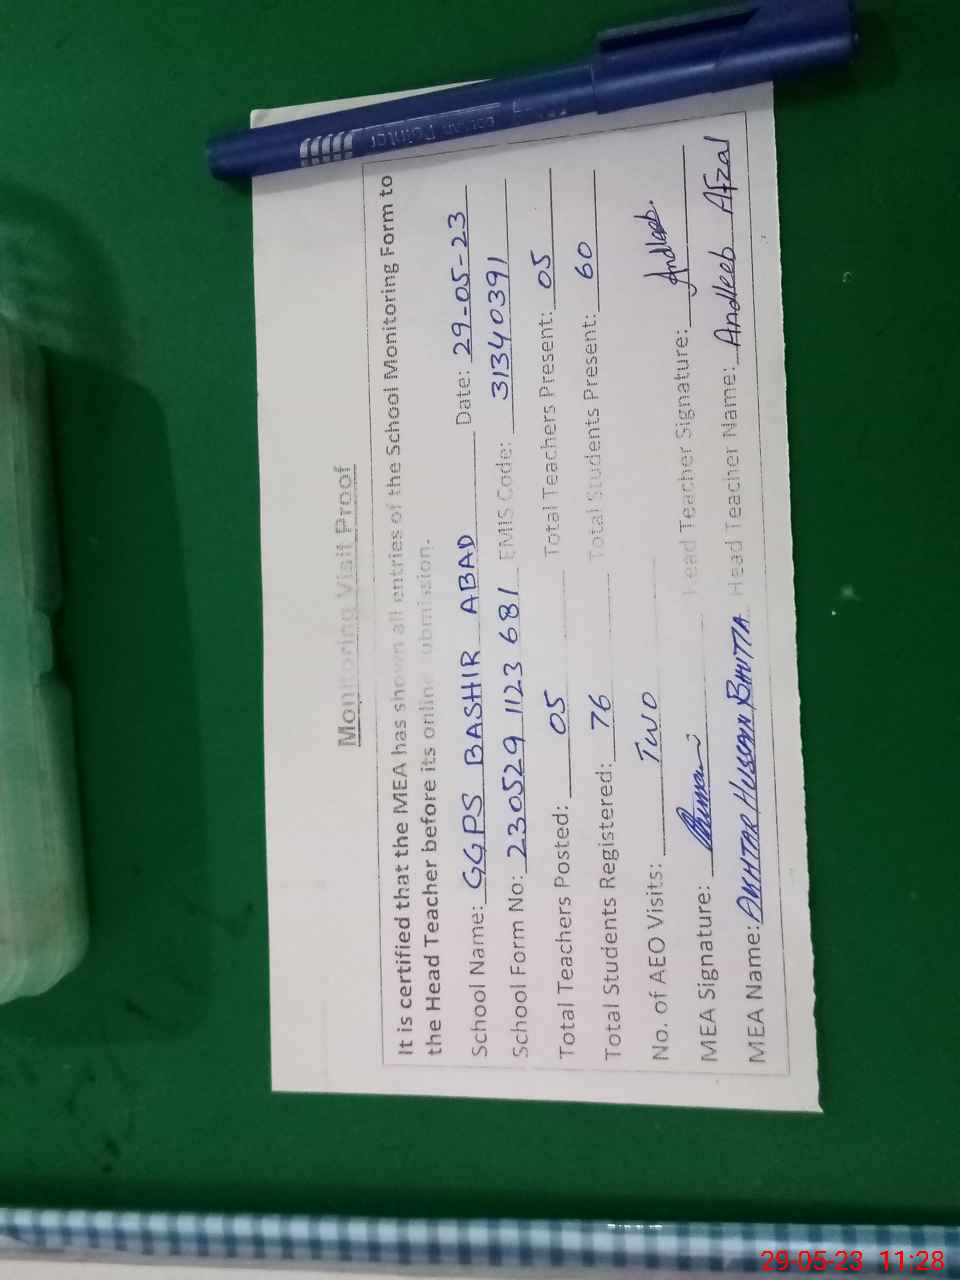 Monitoring Visit Proof
It is certified that the MEA has shown all entries of the School Monitoring Form to
the Head Teacher before its online submission.
School Name: GGPS BASHIR ABAD Date: 29-05-23
School Form No: 230529 1123 681 EMIS Code: 31340391
Total Teachers Posted: 05 Total Teachers Present: 05
Total Students Registered: 76 Total Students Present: 60
No. of AEO Visits: TWO
MEA Signature: Head Teacher Signature: Andleeb.
MEA Name: AKHTAR HUSSAIN BHUTTA Head Teacher Name: Andleeb Afzal
Pointer
29-05-23 11:28